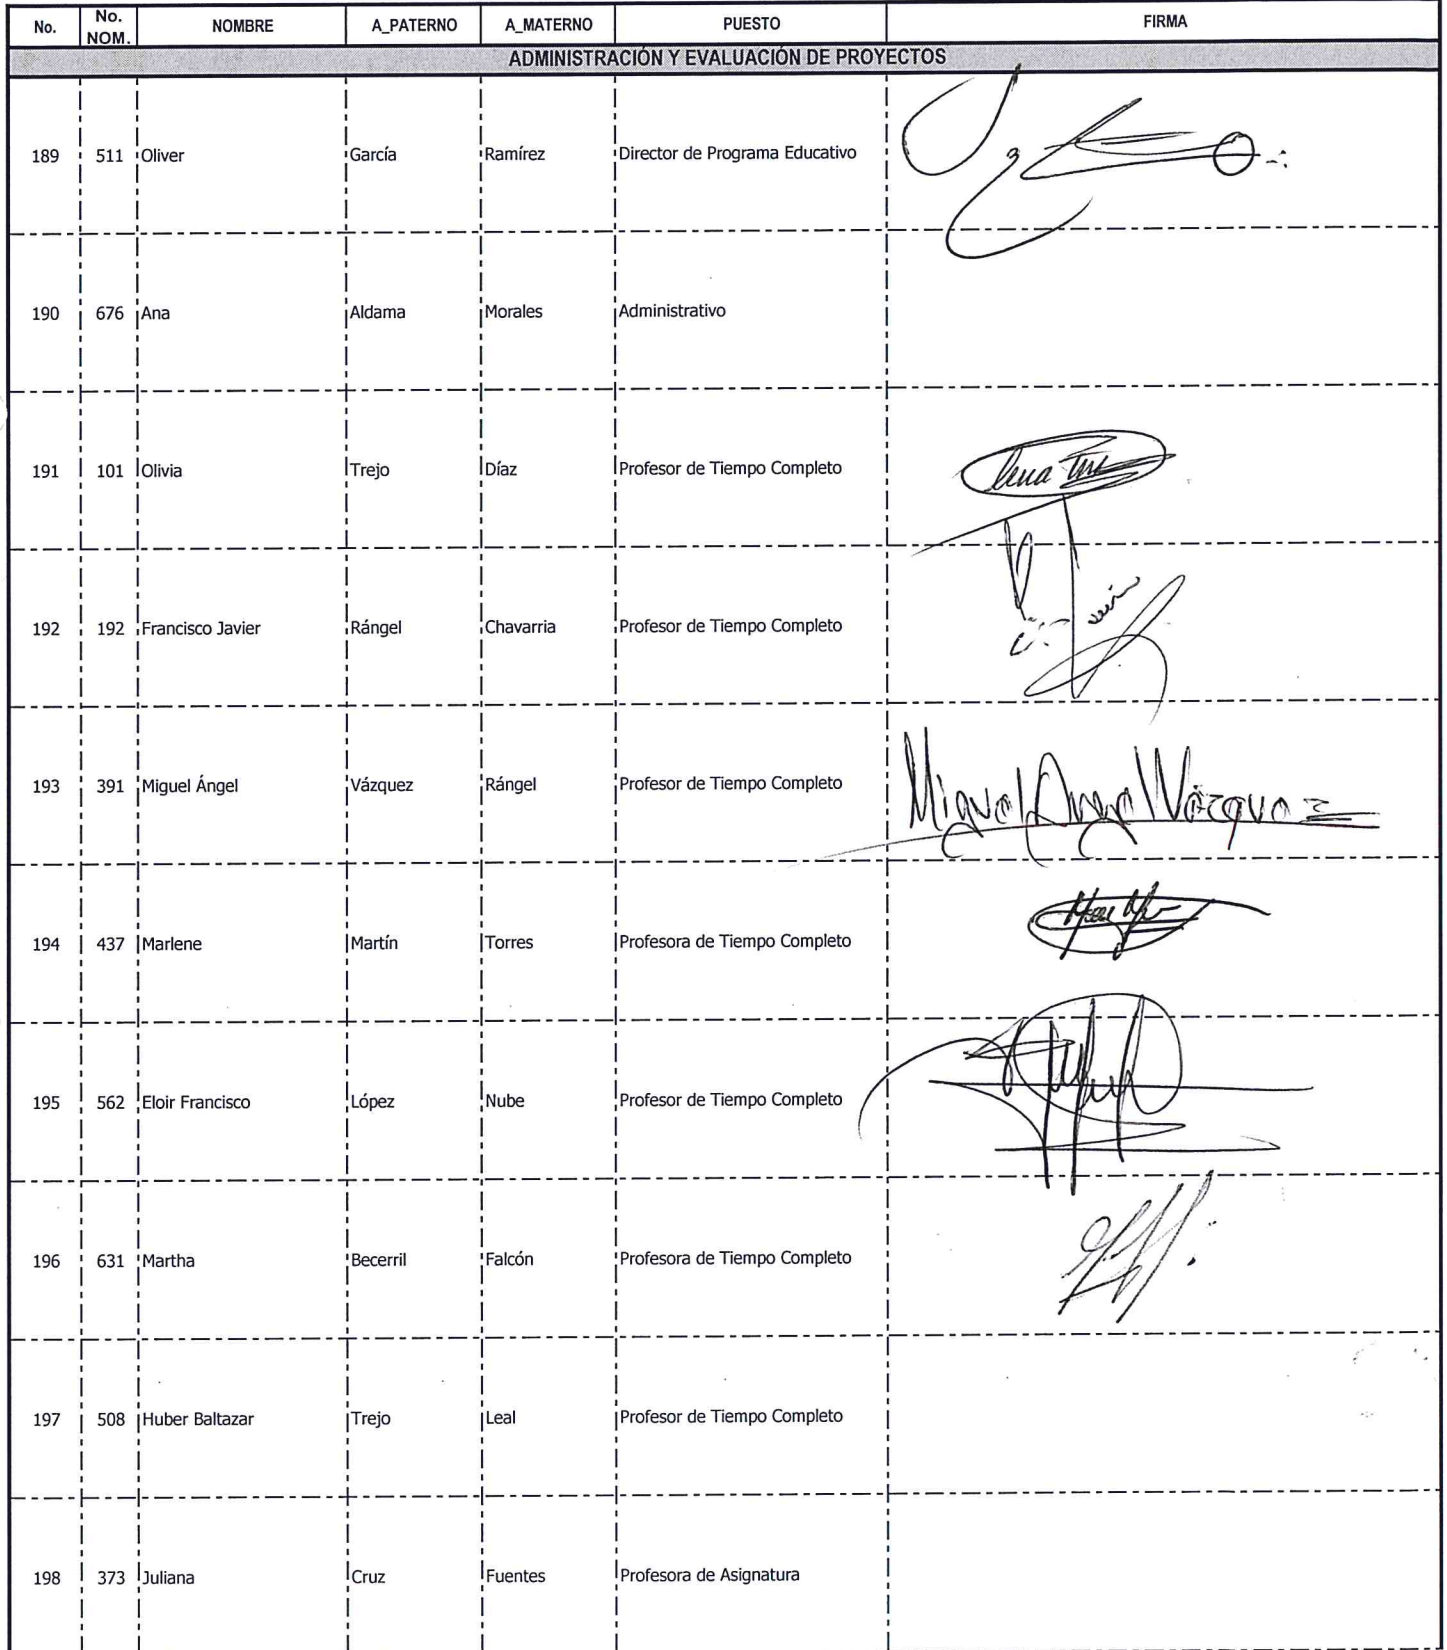 No. No. NOM. NOMBRE A_PATERNO A_MATERNO PUESTO FIRMA
ADMINISTRACIÓN Y EVALUACIÓN DE PROYECTOS
189 511 Oliver García Ramírez Director de Programa Educativo
190 676 Ana Aldama Morales Administrativo
191 101 Olivia Trejo Díaz Profesor de Tiempo Completo
192 192 Francisco Javier Rángel Chavarria Profesor de Tiempo Completo
193 391 Miguel Ángel Vázquez Rángel Profesor de Tiempo Completo Miguel Angel Vázquez
194 437 Marlene Martín Torres Profesora de Tiempo Completo
195 562 Eloir Francisco López Nube Profesor de Tiempo Completo
196 631 Martha Becerril Falcón Profesora de Tiempo Completo
197 508 Huber Baltazar Trejo Leal Profesor de Tiempo Completo
198 373 Juliana Cruz Fuentes Profesora de Asignatura